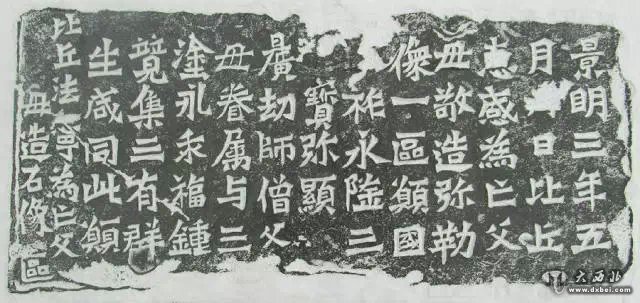 景明三年五
月日比丘
惠感為亡父
母敬造弥勒
像一區願國
祚永隆三
寶弥顯
曠劫師僧父
母眷属与三
塗永乖福鍾
竟集三有群
生咸同此願
比丘法寧為亡父
母造石像區
大西北
www.dxbei.com